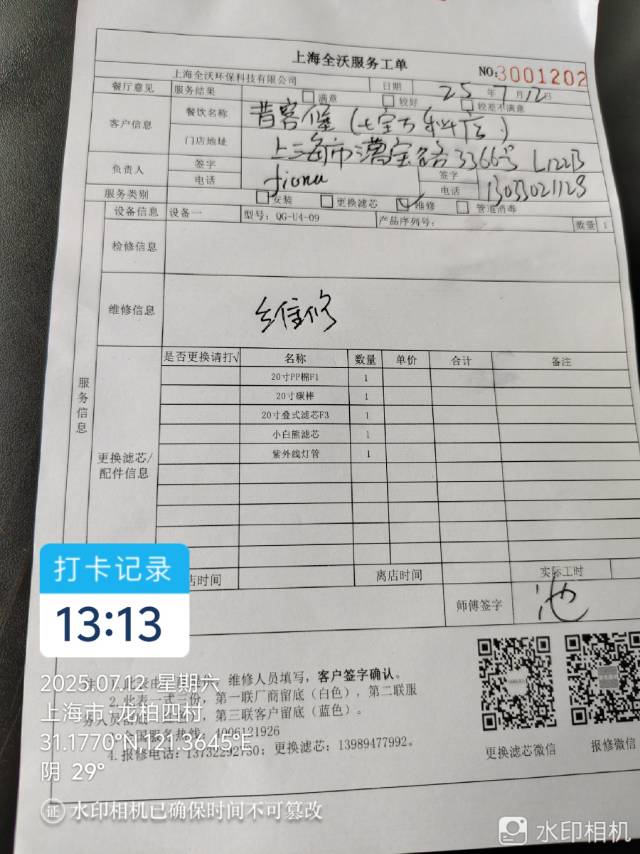 上海全沃服务工单
上海全沃环保科技有限公司 日期 25年7月12日 NO:3001202
餐厅意见 服务结果 满意 较好 较差不满意
客户信息 餐饮名称
门店地址 上海市漕宝路3366号L122B
负责人 签字 fiona 签字
电话 电话
服务类别 安装 更换滤芯 维修 管道消毒
服务信息
设备信息 设备一 型号：QG-U4-09 产品序列号： 数量 1
检修信息
维修信息 维修
更换滤芯/
配件信息
是否更换请打√ 名称 数量 单价 合计 备注
20寸PP棉F1 1
20寸碳棒 1
20寸叠式滤芯F3 1
小白熊滤芯 1
紫外线灯管 1
店时间 离店时间 实际工时
师傅签字 池
打卡记录
13:13
2025.07.12 星期六
上海市·龙柏四村
31.1770°N,121.3645°E
阴 29°
维修人员填写，客户签字确认。
2. 此表一式三份，第一联厂商留底（白色），第二联服
务人员 第三联客户留底（蓝色）。
全国服务热线：4006121926
4. 报修电话：13732292750；更换滤芯：13989477992。
更换滤芯微信 报修微信
证 水印相机已确保时间不可篡改
水印相机